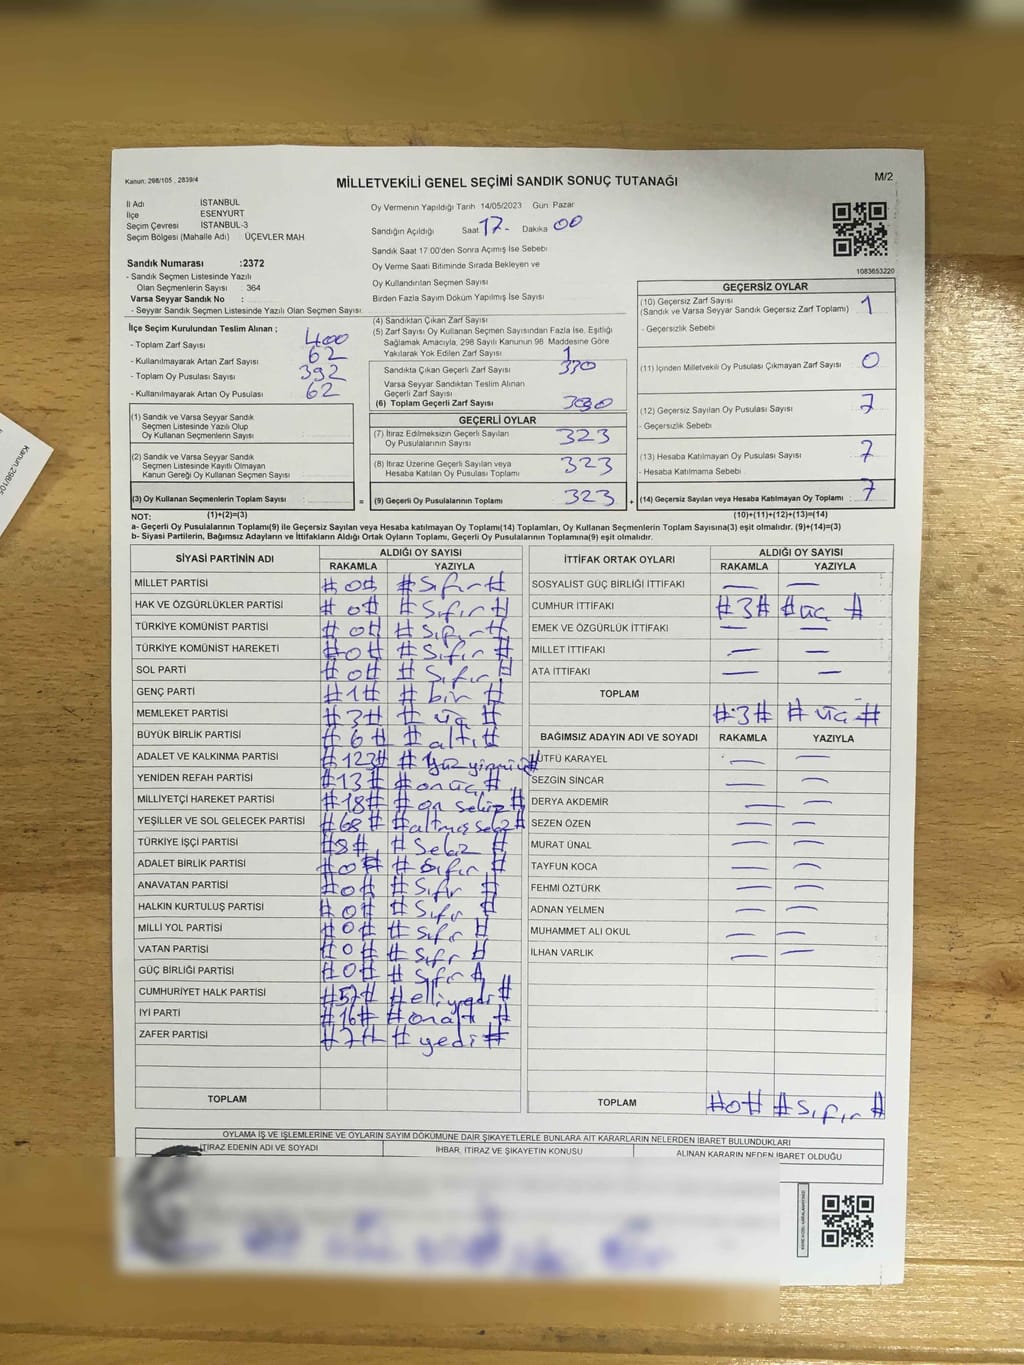 Kanun: 298/105 , 2839/4
MİLLETVEKİLİ GENEL SEÇİMİ SANDIK SONUÇ TUTANAĞI
M/2
İl Adı İSTANBUL
İlçe ESENYURT
Seçim Çevresi İSTANBUL-3
Seçim Bölgesi (Mahalle Adı) ÜÇEVLER MAH
Sandık Numarası :2372
- Sandık Seçmen Listesinde Yazılı
Olan Seçmenlerin Sayısı : 364
Varsa Seyyar Sandık No :
- Seyyar Sandık Seçmen Listesinde Yazılı Olan Seçmen Sayısı
Oy Vermenin Yapıldığı Tarih 14/05/2023 Gün Pazar
Sandığın Açıldığı Saat 17- Dakika 00
Sandık Saat 17:00'den Sonra Açılmış İse Sebebi
Oy Verme Saati Bitiminde Sırada Bekleyen ve
Oy Kullandırılan Seçmen Sayısı
Birden Fazla Sayım Döküm Yapılmış İse Sayısı
1083653220
İlçe Seçim Kurulundan Teslim Alınan ;
- Toplam Zarf Sayısı 400
- Kullanılmayarak Artan Zarf Sayısı 62
- Toplam Oy Pusulası Sayısı 392
- Kullanılmayarak Artan Oy Pusulası 62
(1) Sandık ve Varsa Seyyar Sandık
Seçmen Listesinde Yazılı Olup
Oy Kullanan Seçmenlerin Sayısı
(2) Sandık ve Varsa Seyyar Sandık
Seçmen Listesinde Kayıtlı Olmayan
Kanun Gereği Oy Kullanan Seçmen Sayısı
(3) Oy Kullanan Seçmenlerin Toplam Sayısı :
(1)+(2)=(3)
(4) Sandıktan Çıkan Zarf Sayısı
(5) Zarf Sayısı Oy Kullanan Seçmen Sayısından Fazla İse, Eşitliği
Sağlamak Amacıyla, 298 Sayılı Kanunun 98. Maddesine Göre
Yakılarak Yok Edilen Zarf Sayısı 1
Sandıkta Çıkan Geçerli Zarf Sayısı 330
Varsa Seyyar Sandıktan Teslim Alınan
Geçerli Zarf Sayısı
(6) Toplam Geçerli Zarf Sayısı
GEÇERLİ OYLAR
(7) İtiraz Edilmeksizin Geçerli Sayılan
Oy Pusulalarının Sayısı 323
(8) İtiraz Üzerine Geçerli Sayılan veya
Hesaba Katılan Oy Pusulası Toplamı 323
= (9) Geçerli Oy Pusulalarının Toplamı 323 +
GEÇERSİZ OYLAR
(10) Geçersiz Zarf Sayısı
(Sandık ve Varsa Seyyar Sandık Geçersiz Zarf Toplamı) 1
- Geçersizlik Sebebi
(11) İçinden Milletvekili Oy Pusulası Çıkmayan Zarf Sayısı 0
(12) Geçersiz Sayılan Oy Pusulası Sayısı 7
- Geçersizlik Sebebi
(13) Hesaba Katılmayan Oy Pusulası Sayısı 7
- Hesaba Katılmama Sebebi
(14) Geçersiz Sayılan veya Hesaba Katılmayan Oy Toplamı : 7
(10)+(11)+(12)+(13)=(14)
NOT:
a- Geçerli Oy Pusulalarının Toplamı(9) ile Geçersiz Sayılan veya Hesaba katılmayan Oy Toplamı(14) Toplamları, Oy Kullanan Seçmenlerin Toplam Sayısına(3) eşit olmalıdır. (9)+(14)=(3)
b- Siyasi Partilerin, Bağımsız Adayların ve İttifakların Aldığı Ortak Oyların Toplamı, Geçerli Oy Pusulalarının Toplamına(9) eşit olmalıdır.
SİYASİ PARTİNİN ADI ALDIĞI OY SAYISI
RAKAMLA YAZIYLA
MİLLET PARTİSİ #0# #Sıfır#
HAK VE ÖZGÜRLÜKLER PARTİSİ #0# #Sıfır#
TÜRKİYE KOMÜNİST PARTİSİ #0# #Sıfır#
TÜRKİYE KOMÜNİST HAREKETİ #0# #Sıfır#
SOL PARTİ #0# #Sıfır#
GENÇ PARTİ #1# #bir#
MEMLEKET PARTİSİ #3# #üç#
BÜYÜK BİRLİK PARTİSİ #6# #altı#
ADALET VE KALKINMA PARTİSİ #123# #Yüzyirmiüç#
YENİDEN REFAH PARTİSİ #13# #onüç#
MİLLİYETÇİ HAREKET PARTİSİ #18# #on sekiz#
YEŞİLLER VE SOL GELECEK PARTİSİ #68# #altmışsekiz#
TÜRKİYE İŞÇİ PARTİSİ #8# #Sekiz#
ADALET BİRLİK PARTİSİ #0# #Sıfır#
ANAVATAN PARTİSİ #0# #Sıfır#
HALKIN KURTULUŞ PARTİSİ #0# #Sıfır#
MİLLİ YOL PARTİSİ #0# #sıfır#
VATAN PARTİSİ #0# #sıfır#
GÜÇ BİRLİĞİ PARTİSİ #0# #sıfır#
CUMHURİYET HALK PARTİSİ #57# #elliyedi#
İYİ PARTİ #16# #onaltı#
ZAFER PARTİSİ #7# #yedi#
TOPLAM
İTTİFAK ORTAK OYLARI ALDIĞI OY SAYISI
RAKAMLA YAZIYLA
SOSYALİST GÜÇ BİRLİĞİ İTTİFAKI — —
CUMHUR İTTİFAKI #3# #üç#
EMEK VE ÖZGÜRLÜK İTTİFAKI — —
MİLLET İTTİFAKI — —
ATA İTTİFAKI — —
TOPLAM #3# #üç#
BAĞIMSIZ ADAYIN ADI VE SOYADI RAKAMLA YAZIYLA
LÜTFÜ KARAYEL — —
SEZGİN SİNCAR — —
DERYA AKDEMİR — —
SEZEN ÖZEN — —
MURAT ÜNAL — —
TAYFUN KOCA — —
FEHMİ ÖZTÜRK — —
ADNAN YELMEN — —
MUHAMMET ALİ OKUL — —
İLHAN VARLIK — —
TOPLAM #0# #sıfır#
OYLAMA İŞ VE İŞLEMLERİNE VE OYLARIN SAYIM DÖKÜMÜNE DAİR ŞİKAYETLERLE BUNLARA AİT KARARLARIN NELERDEN İBARET BULUNDUKLARI
İTİRAZ EDENİN ADI VE SOYADI İHBAR, İTİRAZ VE ŞİKAYETİN KONUSU ALINAN KARARIN NEDEN İBARET OLDUĞU
Kanun:298/105